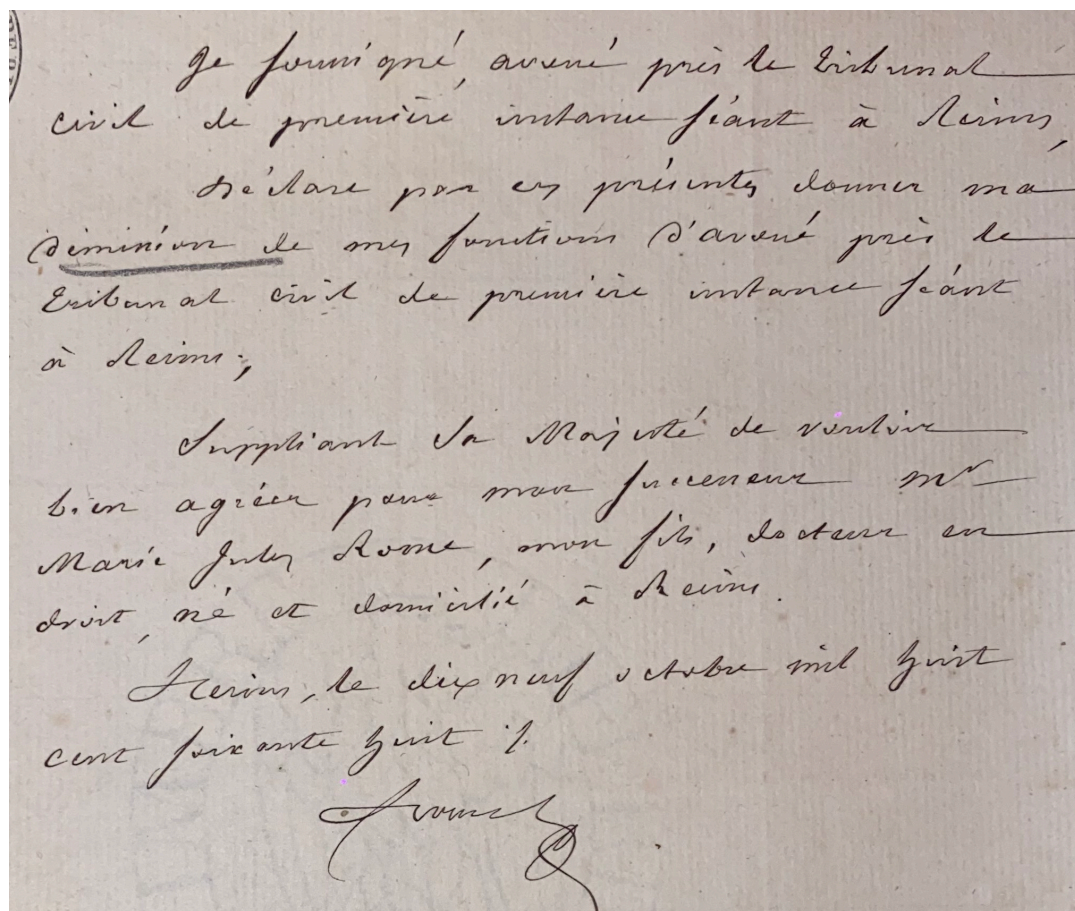 Je soussigné, avoué près le Tribunal
civil de première instance séant à Reims,
Déclare par ces présentes donner ma
démission de mes fonctions d'avoué près le
Tribunal civil de première instance séant
à Reims;
Suppliant Sa Majesté de vouloir
bien agréer pour mon successeur Mr
Marie Jules Rome, mon fils, docteur en
droit, né et domicilié à Reims.
Reims, le dix neuf octobre mil huit
cent soixante huit